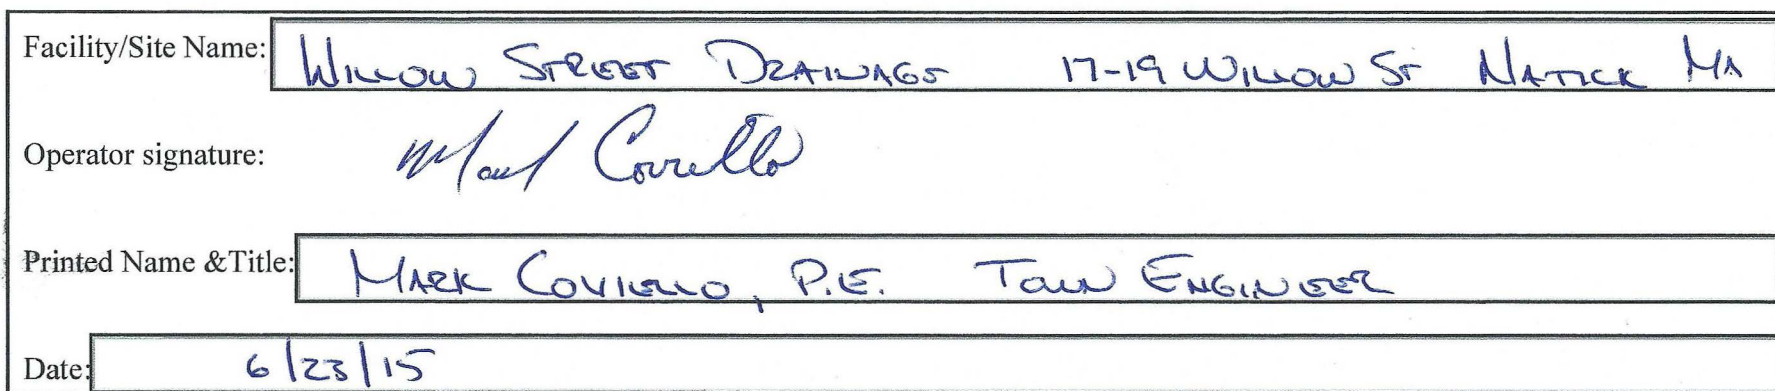 Facility/Site Name: Willow Street Drainage 17-19 Willow St Natick MA
Operator signature: Mark Coviello
Printed Name &Title: Mark Coviello, P.E. Town Engineer
Date: 6/23/15